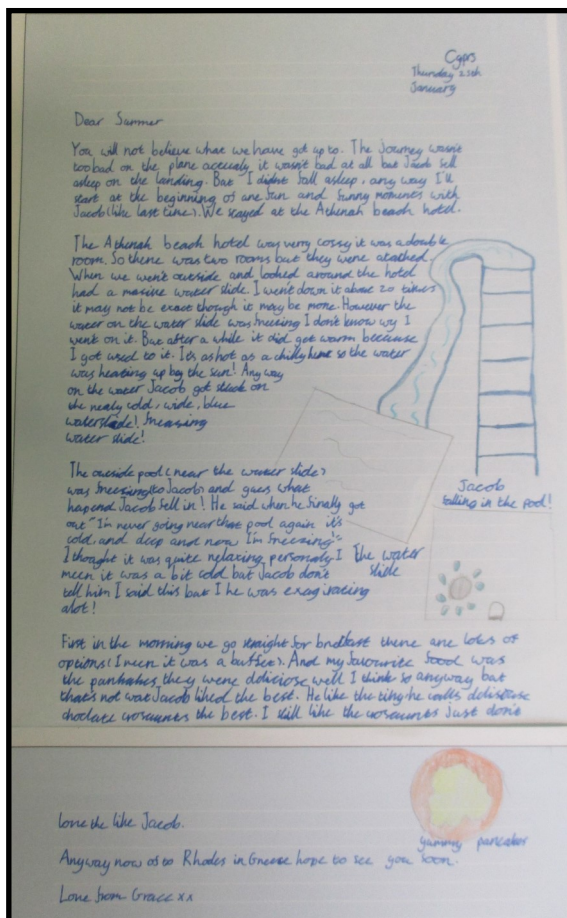 Cgprs
Thursday 25th
January
Dear Summer
You will not believe what we have got up to. The Journey wasn't
too bad on the plane actualy it wasn't bad at all but Jacob fell
asleep on the landing. But I didnt fall asleep, any way I'll
start at the beginning of are Sun and sunny moments with
Jacob (like last time). We stayed at the Athenah beach hotel.
The Athenah beach hotel was very cossy it was a double
room. So there was two rooms but they were atached.
When we wen't outside and looked around the hotel
had a massive water slide. I wen't down it about 20 times
it may not be exact though it may be more. However the
water on the water slide was freezing I don't know wy I
went on it. But after a while it did got warm because
I got used to it. It's as hot as a chilly here so the water
was heating up by the sun! Any way
on the water Jacob got stuck on
the realy cold, wide, blue
waterslide!, freezing
water slide!
The outside pool (near the water slide)
was freezing (to Jacob) and gues what
hapend Jacob fell in! He said when he finally got
out "I'm never going near that pool again it's
cold, and deep and now I'm freezing"
I thought it was quite relaxing personaly I
meen it was a bit cold but Jacob don't
tell him I said this but I he was exagirating
alot!
Jacob
falling in the pool!
The water
slide
First in the morning we go straight for bredfast there are lots of
options (I meen it was a buffet). And my favourite foood was
the panhakes they were deliciose well I think so anyway but
that's not wat Jacob liked the best. He like the tiny he calls
choclate crosaunts the best. I still like the crosaunts just don't
love the like Jacob.
yummy pancakes
Anyway now of to Rhodes in Greese hope to see you soon.
Love from Grace xx